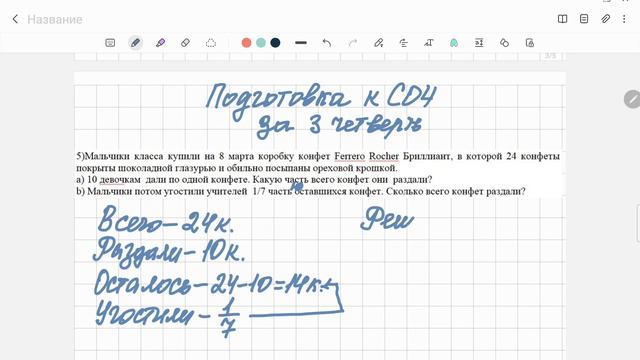 Название
3/5
Подготовка к СО4
за 3 четверть
5)Мальчики класса купили на 8 марта коробку конфет Ferrero Rocher Бриллиант, в которой 24 конфеты
покрыты шоколадной глазурью и обильно посыпаны ореховой крошкой.
a) 10 девочкам дали по одной конфете. Какую часть всего конфет они раздали?
b) Мальчики потом угостили учителей 1/7 часть оставшихся конфет. Сколько всего конфет раздали?
Всего – 24к.
Реш
Раздали – 10к.
Осталось – 24-10=14к.
Угостили – 1/7